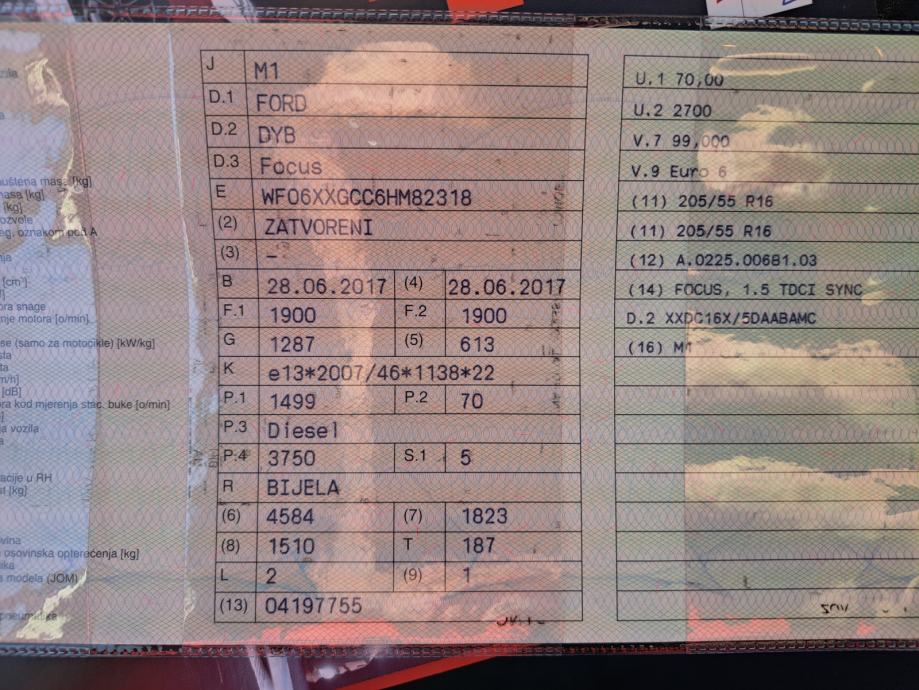 zila
uštena masa [kg]
masa [kg]
[kg]
ozvole
eg. oznakom pod A
nja
[cm³]
ora snage
nje motora [o/min]
se (samo za motocikle) [kW/kg]
sta
ta
m/h]
[dB]
ra kod mjerenja stac. buke [o/min]
a vozila
a
acije u RH
st [kg]
ovina
osovinska opterećenja [kg]
ika
a modela (JOM)
pneumatika
J M1
D.1 FORD
D.2 DYB
D.3 Focus
E WF06XXGCC6HM82318
(2) ZATVORENI
(3) –
B 28.06.2017 (4) 28.06.2017
F.1 1900 F.2 1900
G 1287 (5) 613
K e13*2007/46*1138*22
P.1 1499 P.2 70
P.3 Diesel
P.4 3750 S.1 5
R BIJELA
(6) 4584 (7) 1823
(8) 1510 T 187
L 2 (9) 1
(13) 04197755
U.1 70,00
U.2 2700
V.7 99,000
V.9 Euro 6
(11) 205/55 R16
(11) 205/55 R16
(12) A.0225.00681.03
(14) FOCUS, 1.5 TDCI SYNC
D.2 XXDC16X/5DAABAMC
(16) M1